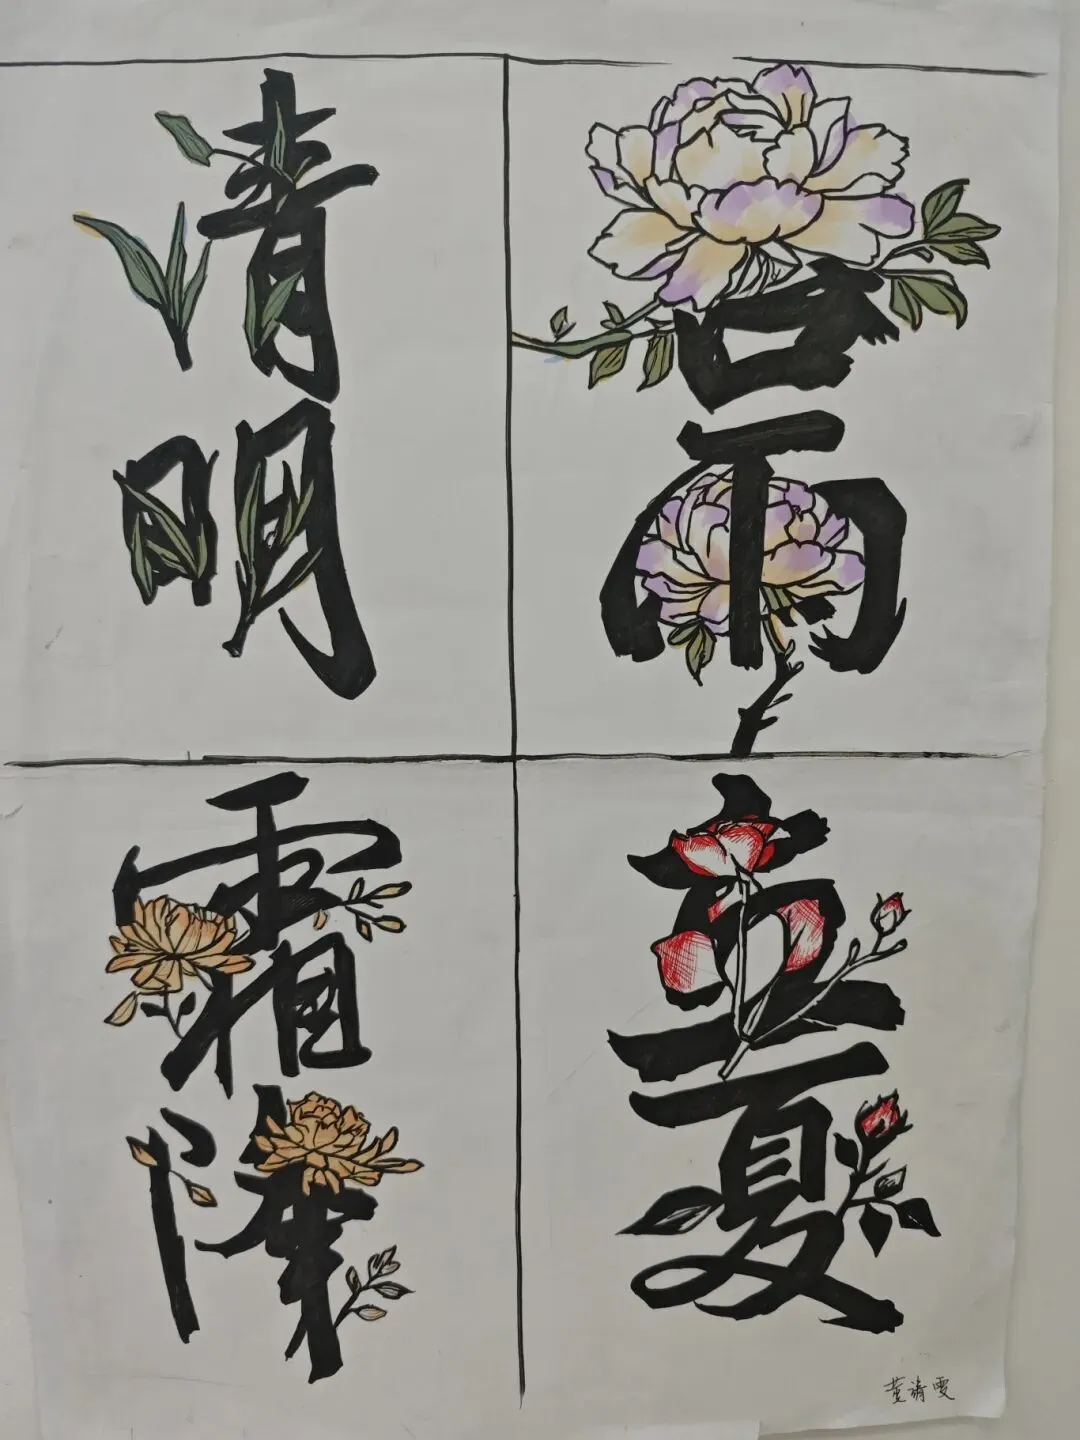 清明
谷雨
霜降
立夏
董靖雯